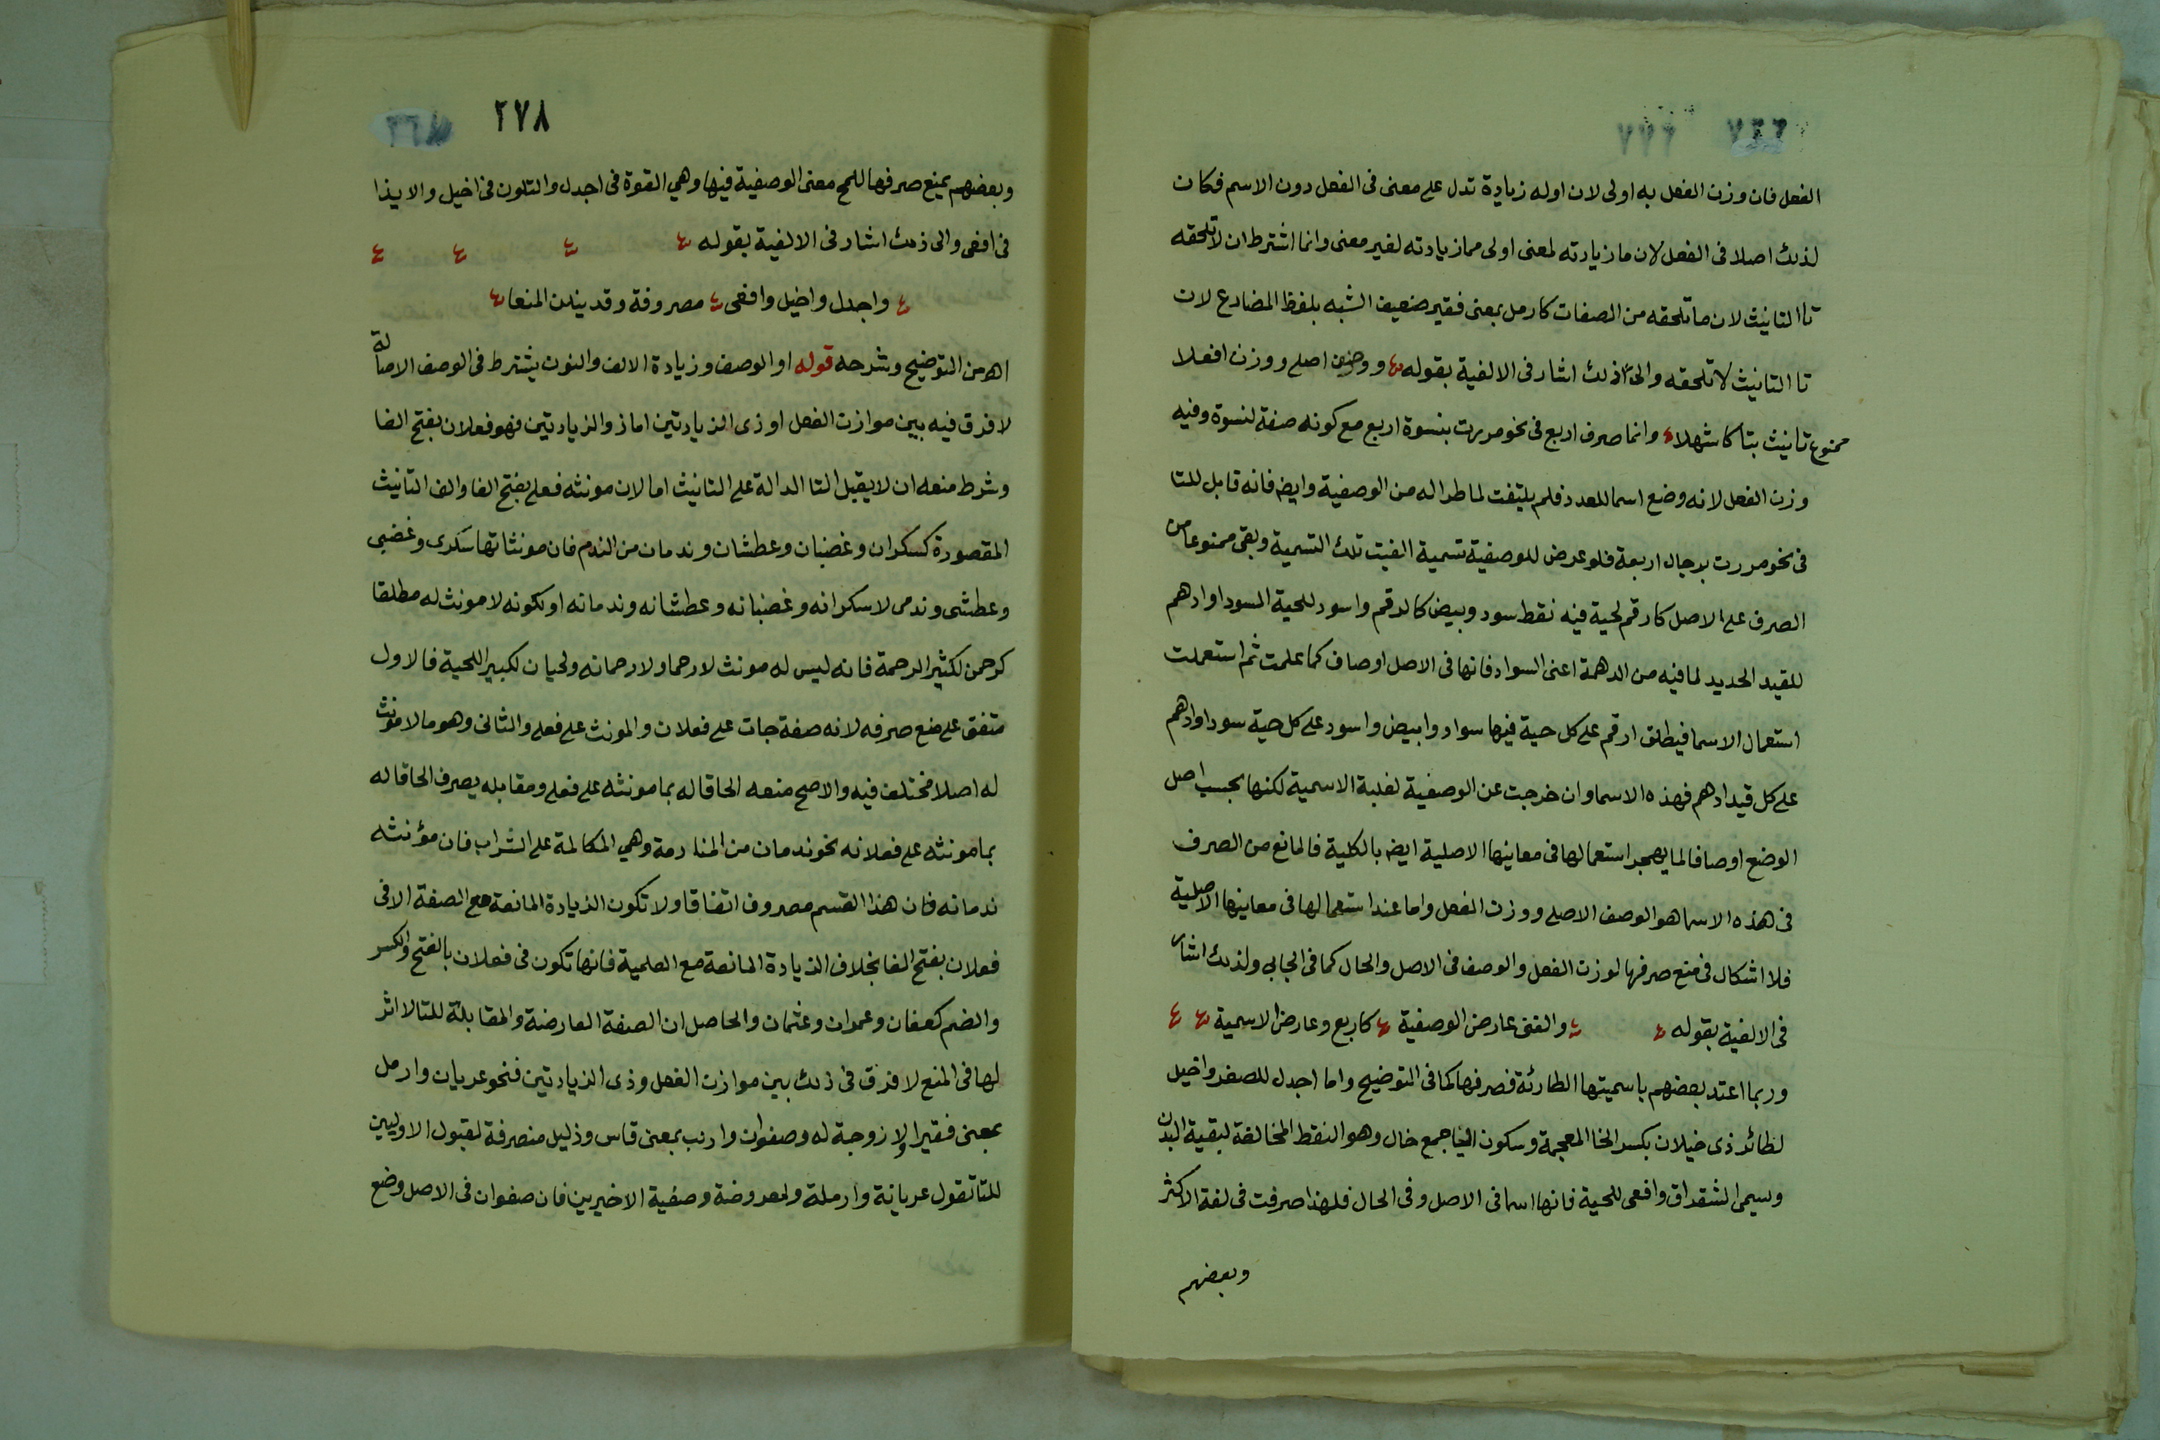 الفعل فان وزن الفعل به اولى لان اوله زيادة تدل على معنى فى الفعل دون الاسم فكان
لذلك اصلا فى الفعل لان ما زيادته لمعنى اولى مما زيادته لغير معنى وانما اشترط ان لا تلحقه
تا التانيث لان ما تلحقه من الصفات كارمل بمعنى فقير ضعيف الشبه بلفظ المضارع لان
تا التانيث لا تلحقه والى ذلك اشار فى الالفية بقوله ووصف اصلى ووزن افعلا
ممنوع تانيث بتا كاشهلا وانما صرف اربع فى نحو مررت بنسوة اربع مع كونه صفة لنسوة وفيه
وزن الفعل لانه وضع اسما للعدد فلم يلتفت لما طرا له من الوصفية وايض فانه قابل للتا
فى نحو مررت برجال اربعة فلو عرض للوصفية تسمية الغيت تلك التسمية وبقى ممنوعا من
الصرف على الاصل كارقم لحية فيه نقط سود وبيض كالرقم واسود للحية السودا وادهم
للقيد الحديد لما فيه من الدهمة اعنى السواد فانها فى الاصل اوصاف كما علمت ثم استعملت
استعمال الاسما فيطلق ارقم على كل حية فيها سواد وابيض واسود على كل حية سودا وادهم
على كل قيد ادهم فهذه الاسما وان خرجت عن الوصفية لغلبة الاسمية لكنها بحسب اصل
الوضع اوصافا لما يهجر استعمالها فى معاينها الاصلية ايض بالكلية فالمانع من الصرف
فى هذه الاسما هو الوصف الاصلى ووزن الفعل واما عند استعمالها فى معاينها الاصلية
فلا اشكال فى منع صرفها لوزن الفعل والوصف فى الاصل والحال كما فى الجابى ولذلك اشار
فى الالفية بقوله والغين عارض الوصفية كاربع وعارض الاسمية
وربما اعتد بعضهم باسميتها الطارئة فصرفها كما فى التوضيح واما اجدل للصقر واخيل
لطائر ذى خيلان بكسر الخا المعجمة وسكون اليا جمع خال وهو النقط المخالفة لبقية البدن
ويسمى الشقراق وافعى للحية فانها اسما فى الاصل وفى الحال فلهذا صرفت فى لغة الاكثر
وبعضهم
٢٧٨
وبعضهم يمنع صرفها للمح معنى الوصفية فيها وهي القوة فى اجدل والتلون فى اخيل والايذا
فى افعى والى ذلك اشار فى الالفية بقوله
واجدل واخيل وافعى مصروفة وقد ينلن المنعا
اهـ من التوضيح وشرحه قوله او الوصف وزيادة الالف والنون يشترط فى الوصف الاصالة
لا فرق فيه بين موازن الفعل او ذى الزيادتين اما ذو الزيادتين فهو فعلان بفتح الفا
وشرط منعه ان لا يقبل التا الدالة على التانيث اما لان مونثه فعلى بفتح الفا والف التانيث
المقصورة كسكران وغضبان وعطشان وندمان من الندم فان مونثاتها سكرى وغضبى
وعطشى وندمى لا سكرانه وغضبانه وعطشانه وندمانه او لكونه لا مونث له مطلقا
كرحمن لكثير الرحمة فانه ليس له مونث لا رحما ولا رحمانه ولحيان لكبير اللحية فالاول
متفق على منع صرفه لانه صفة جات على فعلان والمونث على فعلى والثانى وهو ما لا مونث
له اصلا مختلف فيه والاصح منعه الحاقا له بما مونثه على فعلى ومقابله يصرف الحاقا له
بما مونثه على فعلانه نحو ندمان من المنادمة وهي المكالمة على الشراب فان مؤنثه
ندمانه فان هذا القسم مصروف اتفاقا ولا تكون الزيادة المانعة مع الصفة الا فى
فعلان بفتح الفا بخلاف الزيادة المانعة مع العلمية فانها تكون فى فعلان بالفتح والكسر
والضم كعفان وعمران وعثمان والحاصل ان الصفة العارضة والمقابلة للتا لا اثر
لها فى المنع لا فرق فى ذلك بين موازن الفعل وذى الزيادتين فنحو عريان وارمل
بمعنى فقير او لا زوجة له وصفوان وارنب بمعنى قاس وذليل منصرفة لقبول الاوليين
للتا تقول عريانة وارملة ولعروضة وصفية الاخيرين فان صفوان فى الاصل وضع